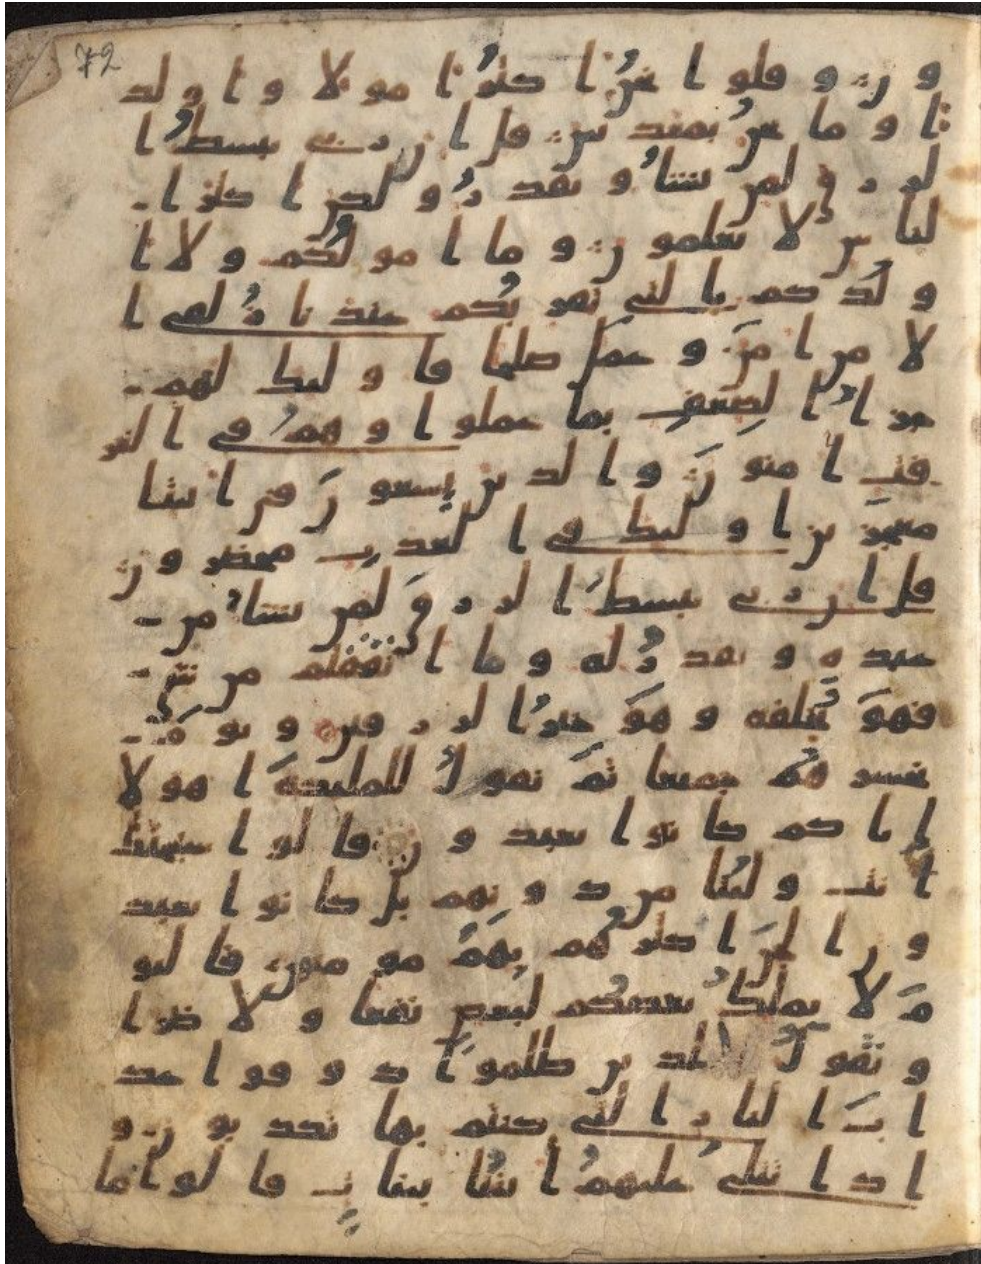 و ن و قلو ا نحن ا كثر ا مو لا و ا و لد
ا و ما نحن بمعذبين قل ا ن ر بي يبسط ا
لر ز ق لمن يشا و يقد ر و لكن ا كثر ا
لنا س لا يعلمو ن و ما ا مو لكم و لا ا
و لد كم با لتي تقر بكم عند نا ز لفى ا
لا من ا من و عمل صلحا فا و ليك لهم
جز ا ا لضعف بما عملو ا و هم في ا لغر
فت ا منو ن و ا لذ ين يسعو ن في ا يتنا
معجز ين ا و ليك في ا لعذ ب محضر و ن
قل ا ن ر بي يبسط ا لر ز ق لمن يشا من
عبد ه و يقد ر له و ما ا نفقتم من شي
فهو يخلفه و هو خير ا لر ز قين و يو م
نحشر هم جميعا ثم نقو ل للمليكة ا هو لا
ا يا كم كا نو ا يعبد و ن قا لو ا سبحنك
ا نت و لينا من د و نهم بل كا نو ا يعبد
و ن ا لجن ا كثر هم بهم مو منو ن فا ليو
م لا يملك بعضكم لبعض نفعا و لا ضر ا
و نقو ل للذ ين ظلمو ا ذ و قو ا عذ
ا ب ا لنا ر ا لتي كنتم بها تكذ بو ن و
ا ذ ا تتلى عليهم ا يتنا بينا ت قا لو ا ما